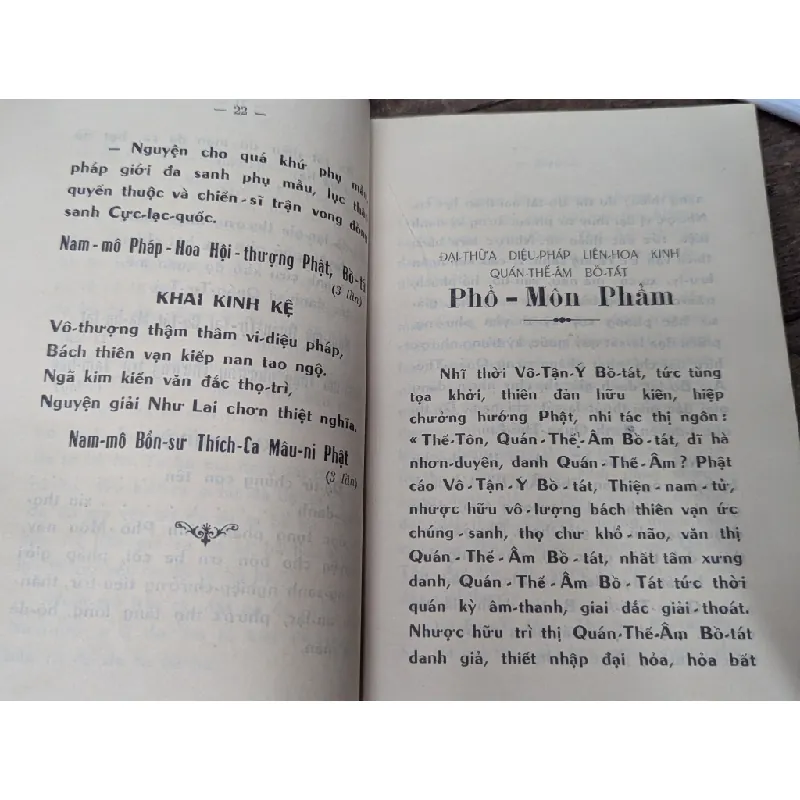 — 22 —
— Nguyện cho quá khứ phụ mẫu,
pháp giới đa sanh phụ mẫu, lục thân
quyến thuộc và chiến-sĩ trận vong đồng
sanh Cực-lạc-quốc.
Nam-mô Pháp-Hoa Hội-thượng Phật, Bồ-tá
(3 lần)
KHAI KINH KỆ
Vô-thượng thậm thâm vi-diệu pháp,
Bách thiên vạn kiếp nan tao ngộ.
Ngã kim kiến văn đắc thọ-trì,
Nguyện giải Như Lai chơn thiệt nghĩa.
Nam-mô Bổn-sư Thích-Ca Mâu-ni Phật
(3 lần)
ĐẠI-THỪA DIỆU-PHÁP LIÊN-HOA KINH
QUÁN-THẾ-ÂM BỒ-TÁT
Phổ-Môn Phẩm
Nhĩ thời Vô-Tận-Ý Bồ-tát, tức tùng
tọa khởi, thiên đản hữu kiên, hiệp
chưởng hướng Phật, nhi tác thị ngôn:
« Thế-Tôn, Quán-Thế-Âm Bồ-tát, dĩ hà
nhơn-duyên, danh Quán-Thế-Âm? Phật
cáo Vô-Tận-Ý Bồ-tát, Thiện-nam-tử,
nhược hữu vô-lượng bách thiên vạn ức
chúng-sanh, thọ chư khổ-não, văn thị
Quán-Thế-Âm Bồ-tát, nhất tâm xưng
danh, Quán-Thế-Âm Bồ-Tát tức thời
quán kỳ âm-thanh, giai đắc giải-thoát.
Nhược hữu trì thị Quán-Thế-Âm Bồ-tát
danh giả, thiết nhập đại hỏa, hỏa bất